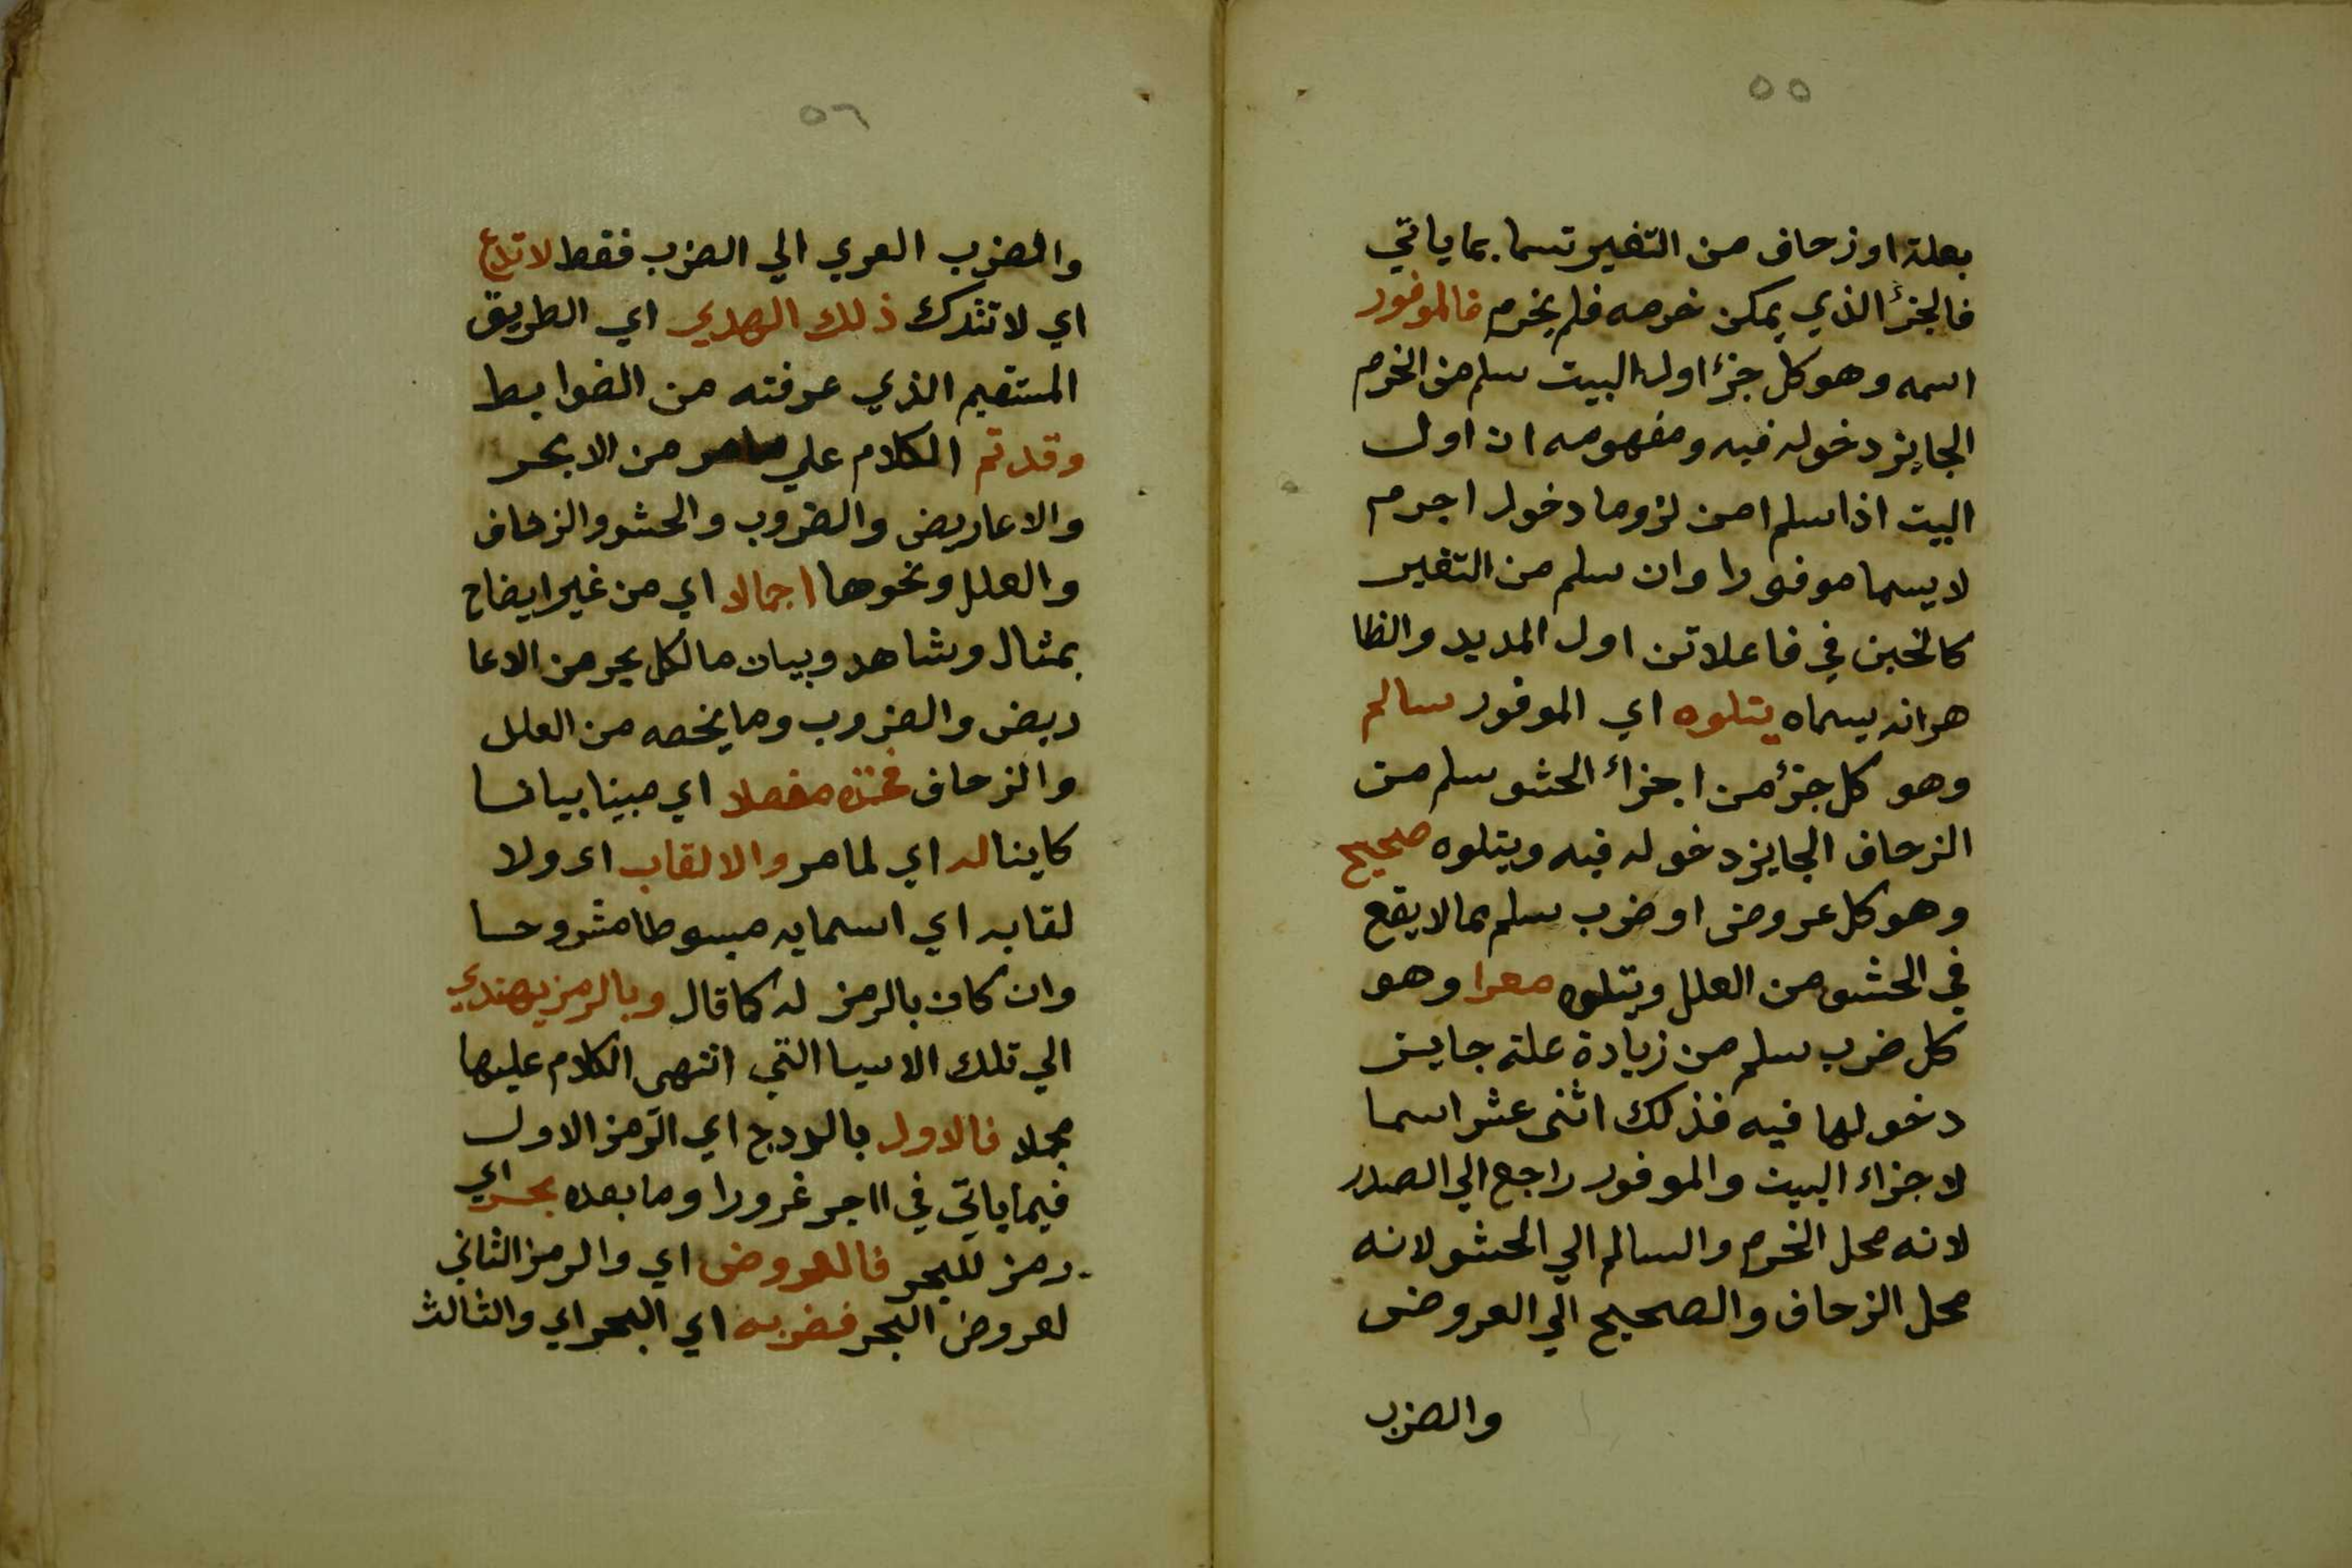 ٥٥
بعلة او زحاف من التغير تسما بما ياتي
فالجزٔ الذي يمكن خرمه فلم يخرم فالموفور
اسمه وهو كل جزٔ اول البيت سلم من الخرم
الجايز دخوله فيه ومفهومه ان اول
البيت اذا سلم من لزوما دخول اجرم
لا يسما موفورا وان سلم من التغير
كالخبن في فاعلاتن اول المديد والظا
هر انه يسماه يتلوه اي الموفور سالم
وهو كل جزٔ من اجزأ الحشو سلم من
الزحاف الجايز دخوله فيه ويتلوه صحيح
وهو كل عروض او ضرب سلم مما لا يقع
في الحشو من العلل ويتلوه معرا وهو
كل ضرب سلم من زيادة علة جايز
دخولها فيه فذلك اثنى عشر اسما
لاجزاء البيت والموفور راجع الي الصدر
لانه محل الخرم والسالم الي الحشو لانه
محل الزحاف والصحيح الي العروض
والضرب
٥٦
والضرب العري الي الضرب فقط لا تدع
اي لا تترك ذلك الهدي اي الطريق
المستقيم الذي عرفته من الضوابط
وقد تم الكلام علي ما مر من الابحر
والاعاريض والضروب والحشو والزحاف
والعلل ونحوها اجمالا اي من غير ايضاح
بمثال وشاهد وبيان ما لكل بحر من الاعا
ريض والضروب وما يخصه من العلل
والزحاف فخذه مفصلا اي مبينا بيانا
كاينا له اي لما مر والالقاب اي ولا
لقابه اي اسمايه مبسوطا مشروحا
وان كان بالرمز له كما قال وبالرمز يهتدي
الي تلك الاسيا التي انتهى الكلام عليها
مجملا فالاول بالدرج اي الرمز الاول
فيما ياتي في ااجر غرورا وما بعده بحر اي
رمز للبحر فالعروض اي والرمز الثاني
لعروض البحر فضربه اي البحر اي والثالث